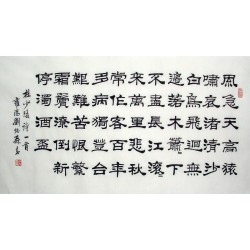 風急天高猿
嘯哀渚清沙
白鳥飛迴無
邊落木蕭蕭下
不盡長江滾滾
來萬里悲秋
常作客百年
多病獨登臺
艱難苦恨繁
霜鬢潦倒新
停濁酒杯
杜少陵詩一首